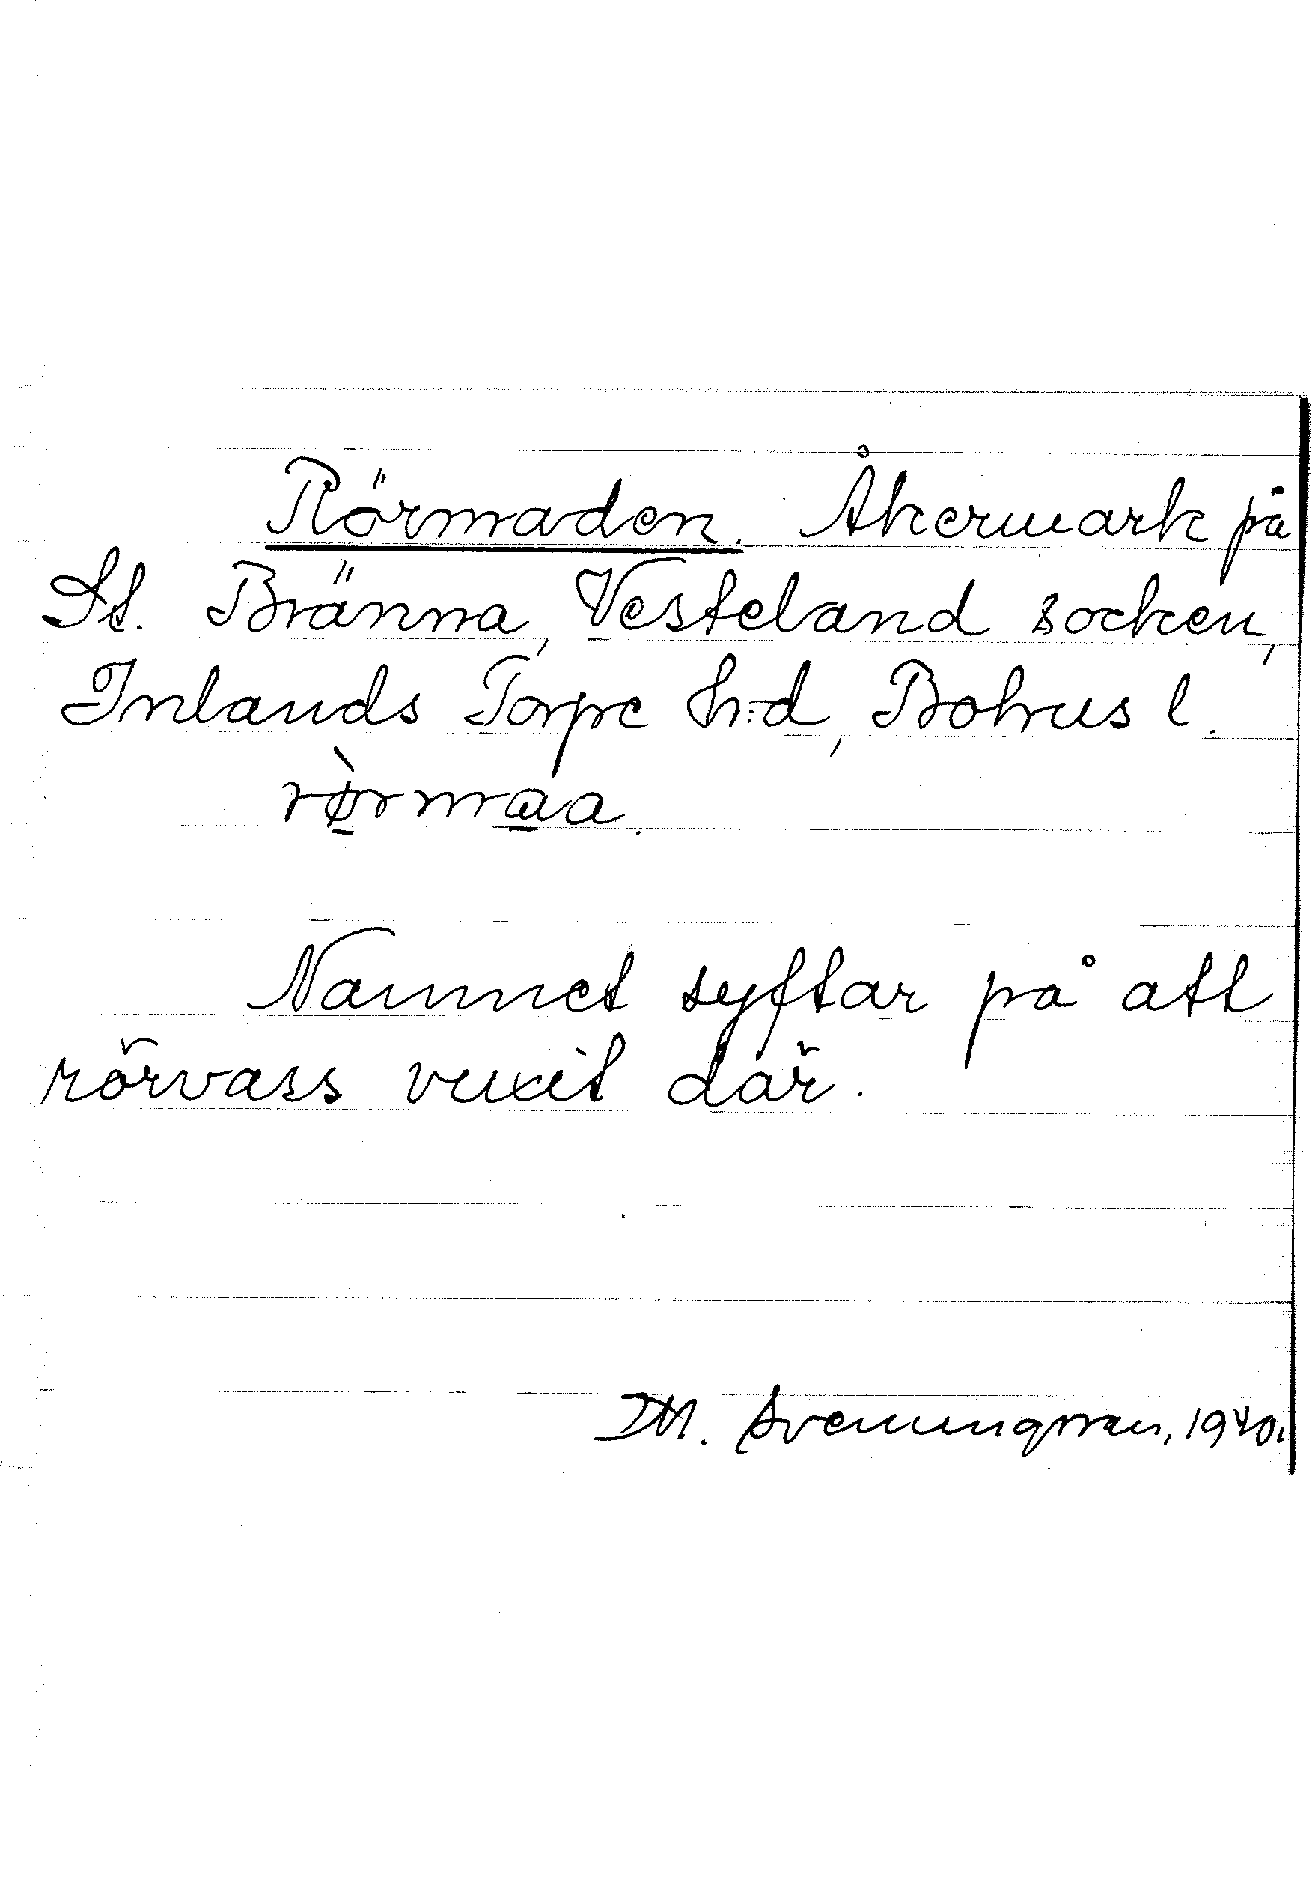 Rörmaden. Åkermark på
St. Bränna, Vesteland socken,
Inlands Torpe h:d, Bohus l.
rø̀rmaa.
Namnet syftar på att
rörvass vuxit där.
D.M. Sveningsson, 1940.